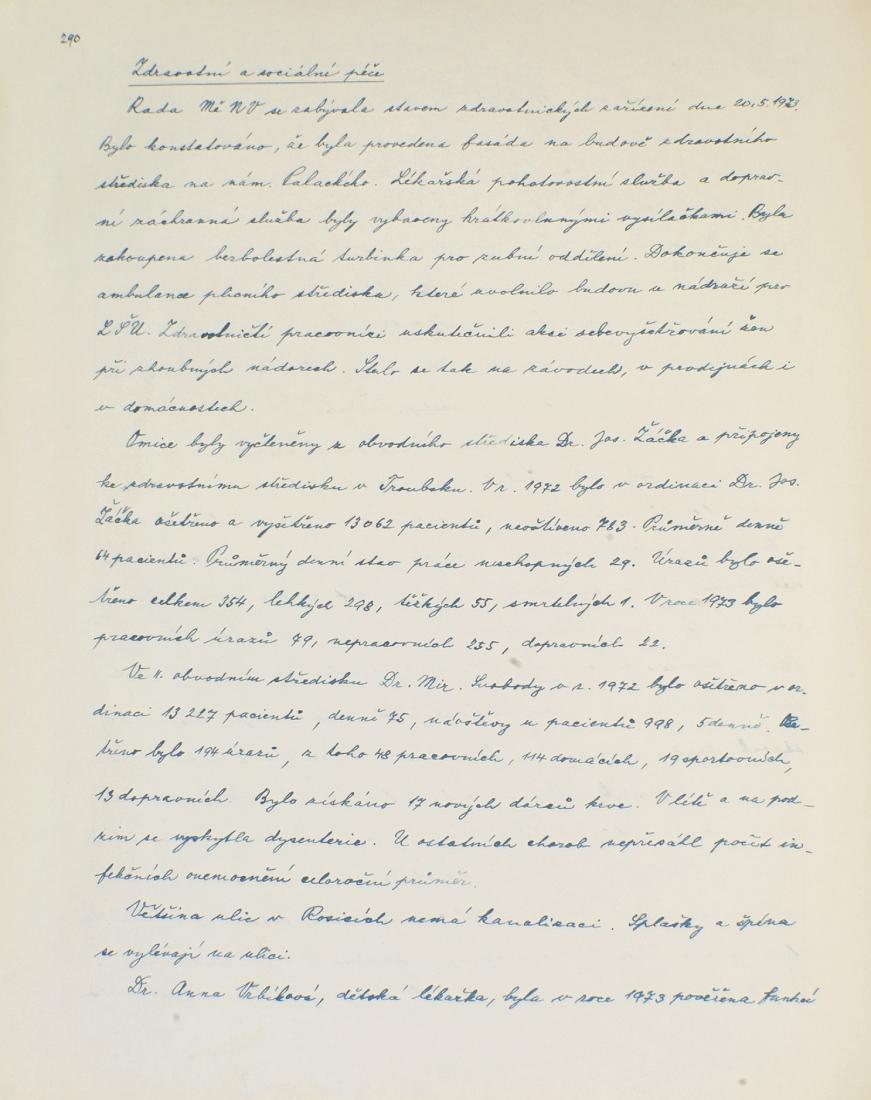 290
Zdravotní a sociální péče
Rada Mě NV se zabývala stavem zdravotnických zařízení dne 20.5.1973.
Bylo konstatováno, že byla provedena fasáda na budově zdravotního
střediska na nám. Palackého. Lékařská pohotovostní služba a doprav-
ní záchranná služba byly vybaveny krátkovlnnými vysílačkami. Byla
zakoupena bezbolestná turbinka pro zubní oddělení. Dokončuje se
ambulance plicního střediska, které uvolnilo budovu u nádraží pro
LŠU. Zdravotničtí pracovníci uskutečnili akci sebevyšetřování žen
při zhoubných nádorech. Stalo se tak na závodech, v prodejnách i
v domácnostech.
Omice byly vyčleněny z obvodního střediska Dr. Jos. Žáčka a připojeny
ke zdravotnímu středisku v Troubsku. V r. 1972 bylo v ordinaci Dr. Jos.
Žáčka ošetřeno a vyšetřeno 13062 pacientů, navštíveno 783. Průměrně denně
64 pacientů. Průměrný denní stav práce neschopných 29. Úrazů bylo oše-
třeno celkem 354, lehkých 298, těžkých 55, smrtelných 1. V roce 1973 bylo
pracovních úrazů 79, nepracovních 255, dopravních 22.
Ve II. obvodním středisku Dr. Mir. Svobody v r. 1972 bylo ošetřeno v or-
dinaci 13 227 pacientů, denně 75, návštěvy u pacientů 998, 5 denně. Oše-
třeno bylo 194 úrazů, z toho 48 pracovních, 114 domácích, 19 sportovních,
13 dopravních. Bylo získáno 17 nových dárců krve. V létě a na pod-
zim se vyskytla dysenterie. U ostatních chorob nepřesáhl počet in-
fekčních onemocnění celoroční průměr.
Většina ulic v Rosicích nemá kanalizaci. Splašky a špína
se vylévají na ulici.
Dr. Anna Vrbíková, dětská lékařka, byla v roce 1973 pověřena funkcí